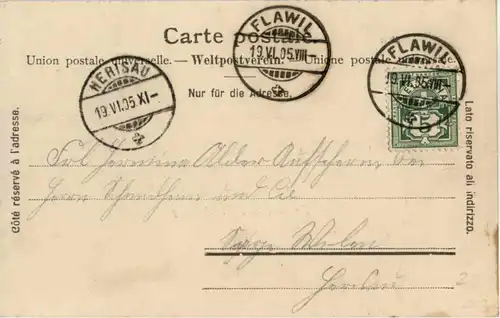 Carte postale.
Union postale universelle. — Weltpostverein. — Unione postale universale.
Nur für die Adresse.
Côté réservé à l'adresse.
Lato riservato all indirizzo.
FLAWIL
19.VI.05.VIII–
FLAWIL
19.VI.05.VIII–
HERISAU
19.VI.05.XI–
5
Frl Hermina Alder
Herrn und Cie
Herisau
2